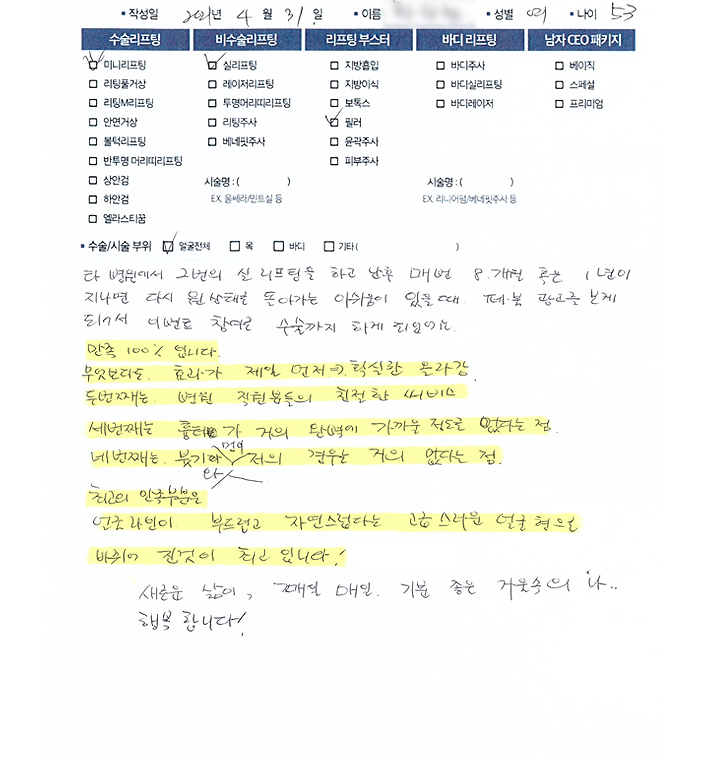 ▪ 작성일 년 4 월 31 일 ▪ 이름 ▪ 성별 여 ▪ 나이 53
수술리프팅 비수술리프팅 리프팅 부스터 바디 리프팅 남자 CEO 패키지
미니리프팅 실리프팅 지방흡입 바디주사 베이직
리팅풀거상 레이저리프팅 지방이식 바디실리프팅 스페셜
리팅M리프팅 투명머리띠리프팅 보톡스 바디레이저 프리미엄
안면거상 리팅주사 필러
볼턱리프팅 베네핏주사 윤곽주사
반투명 머리띠리프팅 피부주사
상안검 시술명 : ( ) 시술명 : ( )
하안검 EX. 울쎄라/민트실 등 EX. 리니어펌/베네핏주사 등
엘라스티꿈
▪ 수술/시술 부위 얼굴전체 목 바디 기타 ( )
타 병원에서 그번의 실 리프팅을 하고 난후 매번 8개월 혹은 1년이
지나면 다시 원상태로 돌아가는 아쉬움이 있을때. 페북 광고를 보게
되어서 이번로 참여로 수술까지 하게 되었어요.
만족 100% 입니다.
무엇보다도. 효과가 제일 먼저 확실한 올라감.
두번째는. 병원 직원분들의 친절한 써비스
세번째는 흉터가 거의 완벽에 가까운 정도로 없다는 점.
네번째는. 붓기와 멍이 저의 경우는 거의 없다는 점.
최고의 만족부분은
언춘라인이 부드럽고 자연스럽다는 고급스러운 얼굴형으로
바뀌어 진것이 최고입니다!
새로운 삶이, 매일 매일. 기분 좋은 거울속의 나..
행복합니다!